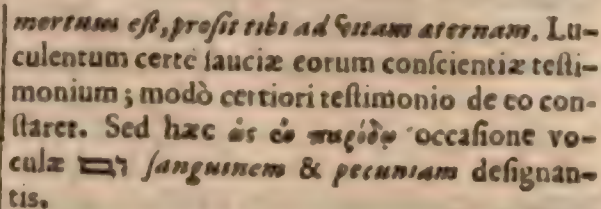 mortuus eſt, proſit tibi ad vitam æternam. Lu-
culentum certè ſauciæ eorum conſcientiæ teſti-
monium; modò certiori teſtimonio de eo con-
ſtaret. Sed hæc ὡς ἐν παρόδῳ occaſione vo-
culæ דם ſanguinem & pecuniam deſignan-
tis.